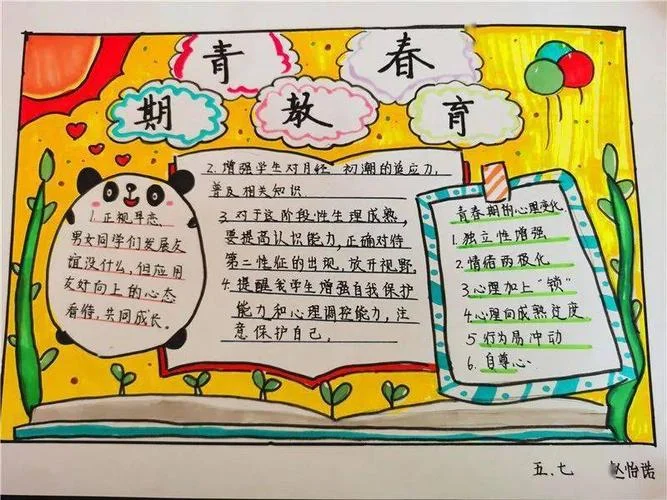 青春
期教育
1. 正视早恋.
男女同学们发展友
谊没什么,但应用
友好向上的心态
看待,共同成长。
2. 增强学生对月经 初潮的适应力,
普及相关知识.
3. 对于这阶段性生理成熟,
要提高认识能力,正确对待
第二性征的出现,放开视野.
4. 提醒我学生增强自我保护
能力和心理调控能力,注
意保护自己.
青春期的心理变化.
1.独立性增强
2.情绪两极化
3心理加上"锁"
4心理向成熟过度
5行为易冲动
6.自尊心.
五.七 赵怡诺